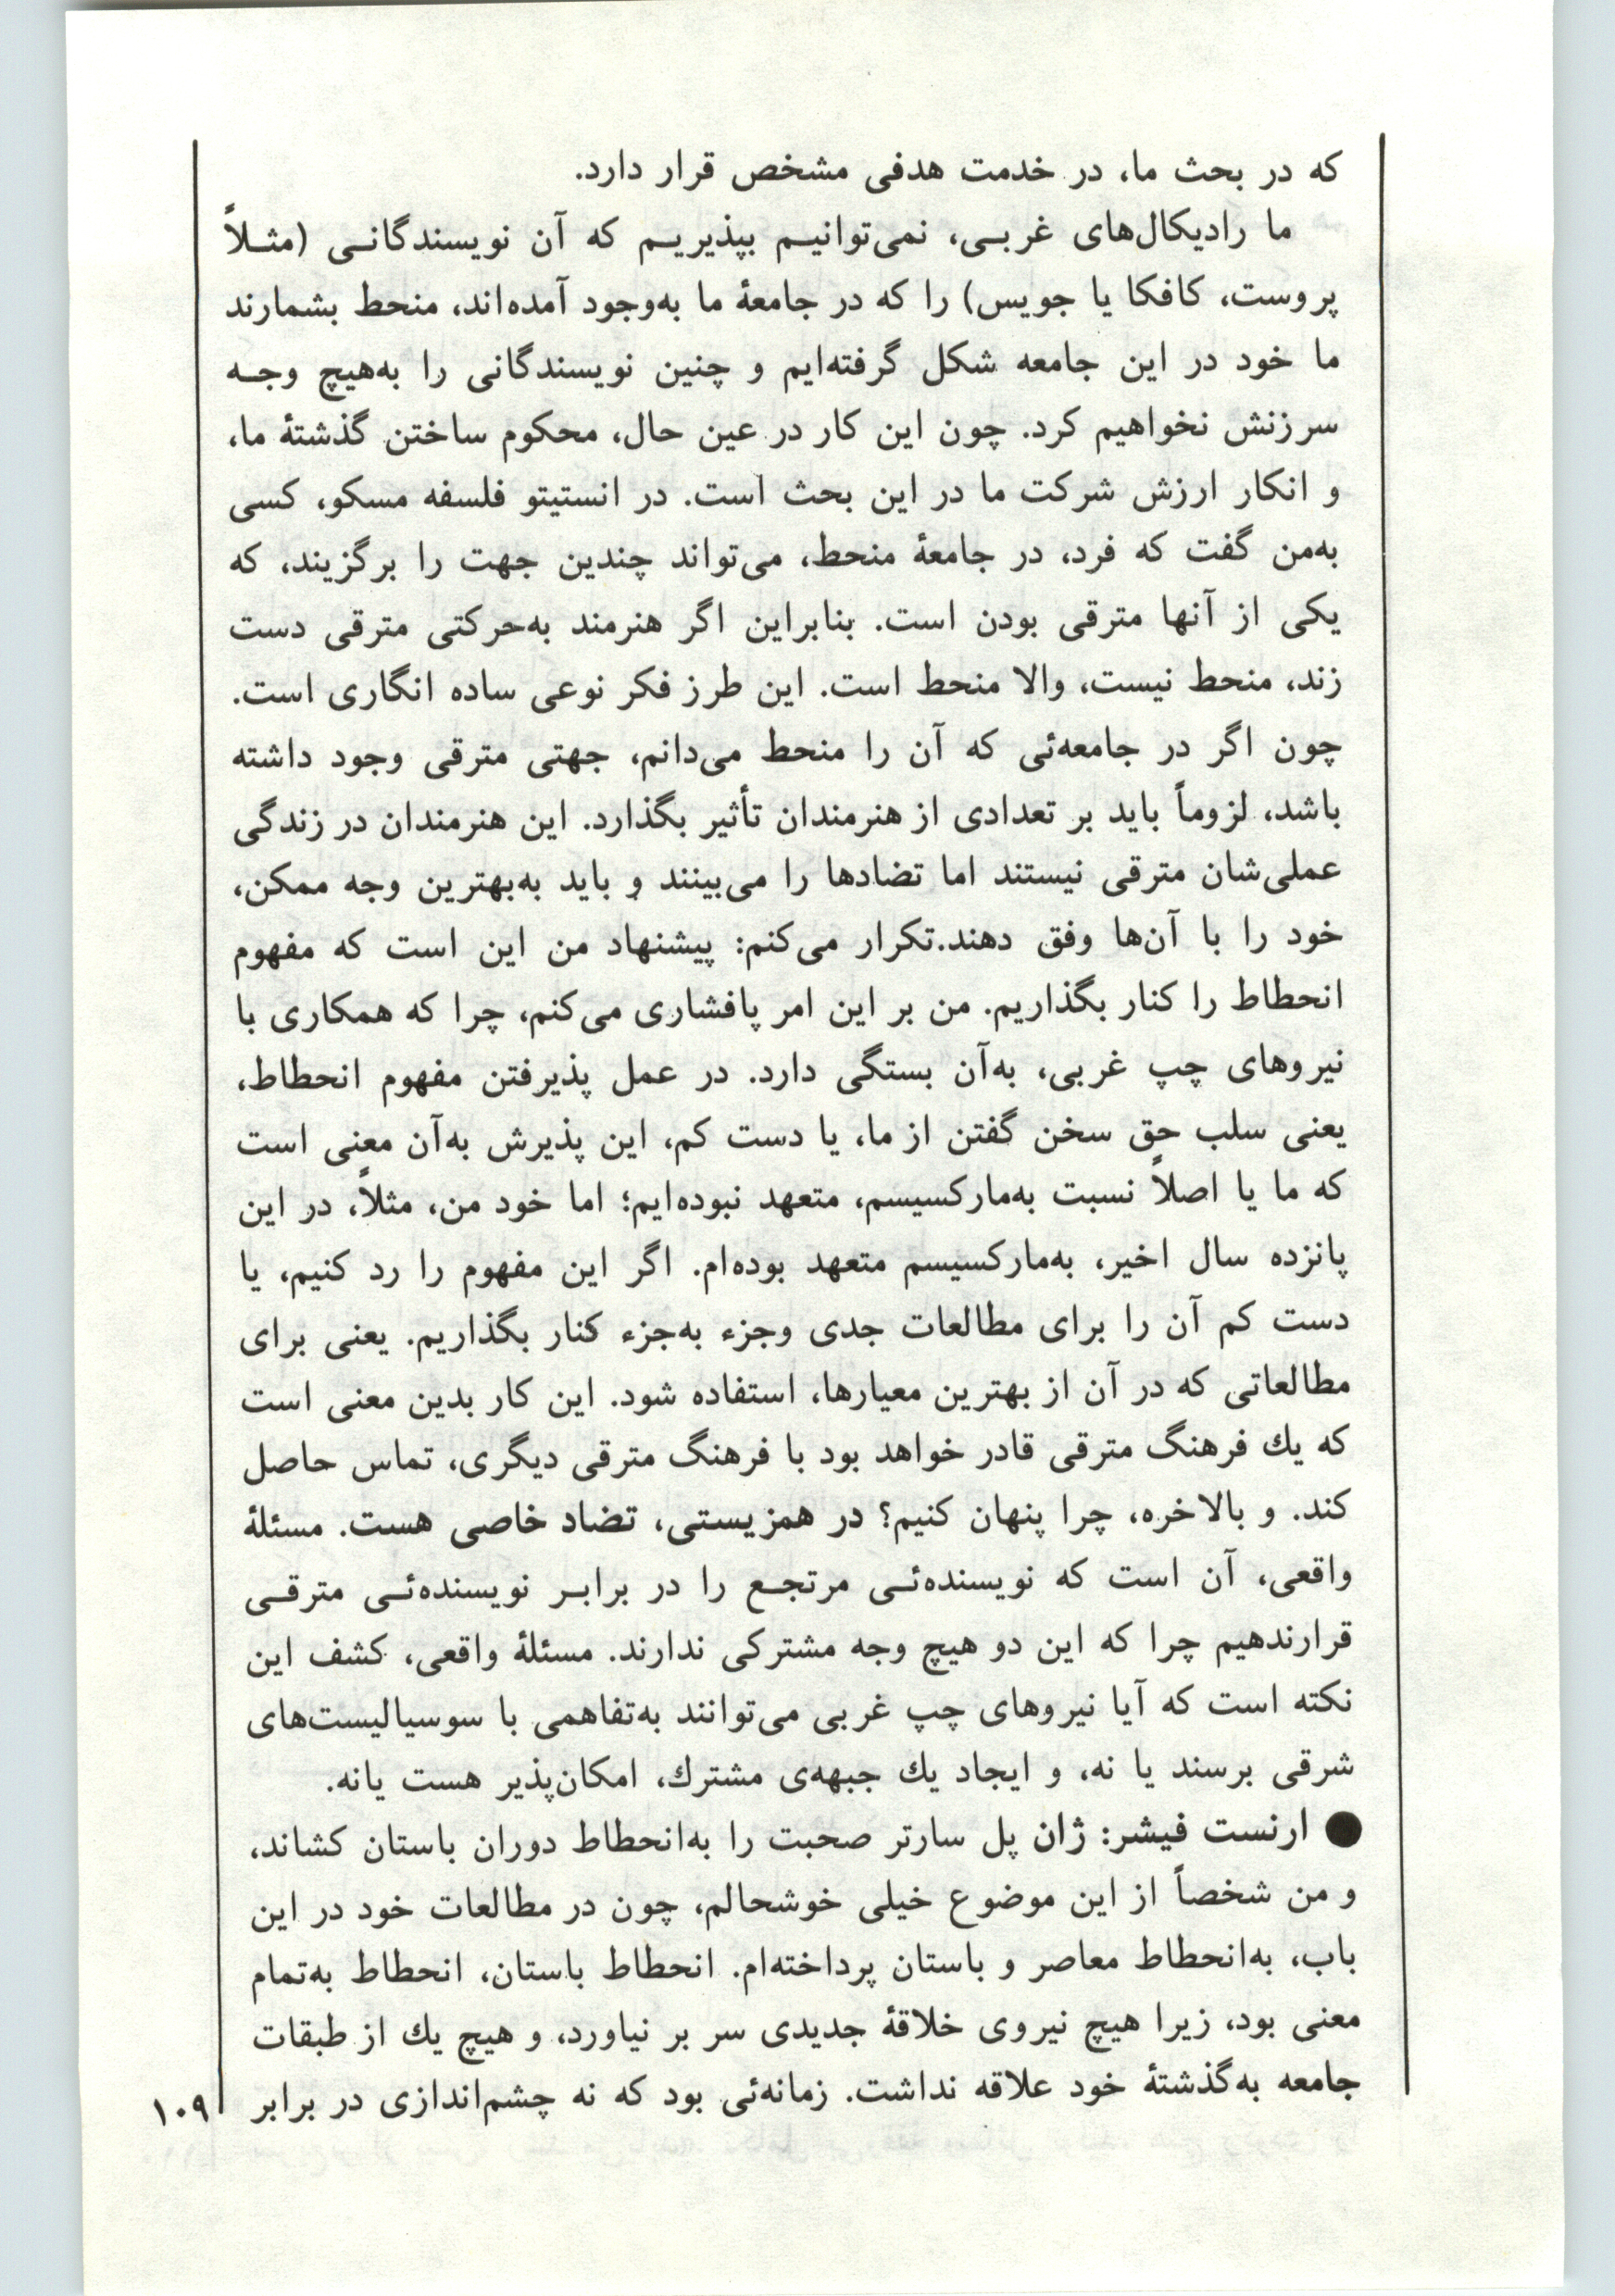 که در بحث ما، در خدمت هدفی مشخص قرار دارد.
ما رادیکال‌های غربـی، نمی‌توانیـم بپذیریـم که آن نویسندگانـی (مثـلاً
پروست، کافکا یا جویس) را که در جامعهٔ ما به‌وجود آمده‌اند، منحط بشمارند
ما خود در این جامعه شکل گرفته‌ایم و چنین نویسندگانی را به‌هیچ وجـه
سرزنش نخواهیم کرد. چون این کار در عین حال، محکوم ساختن گذشتهٔ ما،
و انکار ارزش شرکت ما در این بحث است. در انستیتو فلسفه مسکو، کسی
به‌من گفت که فرد، در جامعهٔ منحط، می‌تواند چندین جهت را برگزیند، که
یکی از آنها مترقی بودن است. بنابراین اگر هنرمند به‌حرکتی مترقی دست
زند، منحط نیست، والا منحط است. این طرز فکر نوعی ساده انگاری است.
چون اگر در جامعه‌ئی که آن را منحط می‌دانم، جهتی مترقی وجود داشته
باشد، لزوماً باید بر تعدادی از هنرمندان تأثیر بگذارد. این هنرمندان در زندگی
عملی‌شان مترقی نیستند اما تضادها را می‌بینند و باید به‌بهترین وجه ممکن،
خود را با آن‌ها وفق دهند.تکرار می‌کنم: پیشنهاد من این است که مفهوم
انحطاط را کنار بگذاریم. من بر این امر پافشاری می‌کنم، چرا که همکاری با
نیروهای چپ غربی، به‌آن بستگی دارد. در عمل پذیرفتن مفهوم انحطاط،
یعنی سلب حق سخن گفتن از ما، یا دست کم، این پذیرش به‌آن معنی است
که ما یا اصلاً نسبت به‌مارکسیسم، متعهد نبوده‌ایم؛ اما خود من، مثلاً، در این
پانزده سال اخیر، به‌مارکسیسم متعهد بوده‌ام. اگر این مفهوم را رد کنیم، یا
دست کم آن را برای مطالعات جدی وجزء به‌جزء کنار بگذاریم. یعنی برای
مطالعاتی که در آن از بهترین معیارها، استفاده شود. این کار بدین معنی است
که یك فرهنگ مترقی قادر خواهد بود با فرهنگ مترقی دیگری، تماس حاصل
کند. و بالاخره، چرا پنهان کنیم؟ در همزیستی، تضاد خاصی هست. مسئلهٔ
واقعی، آن است که نویسنده‌ئـی مرتجـع را در برابـر نویسنده‌ئـی مترقـی
قرارندهیم چرا که این دو هیچ وجه مشترکی ندارند. مسئلهٔ واقعی، کشف این
نکته است که آیا نیروهای چپ غربی می‌توانند به‌تفاهمی با سوسیالیست‌های
شرقی برسند یا نه، و ایجاد یك جبهه‌ی مشترك، امکان‌پذیر هست یانه.
● ارنست فیشر: ژان پل سارتر صحبت را به‌انحطاط دوران باستان کشاند،
و من شخصاً از این موضوع خیلی خوشحالم، چون در مطالعات خود در این
باب، به‌انحطاط معاصر و باستان پرداخته‌ام. انحطاط باستان، انحطاط به‌تمام
معنی بود، زیرا هیچ نیروی خلاقهٔ جدیدی سر بر نیاورد، و هیچ یك از طبقات
جامعه به‌گذشتهٔ خود علاقه نداشت. زمانه‌ئی بود که نه چشم‌اندازی در برابر
۱۰۹